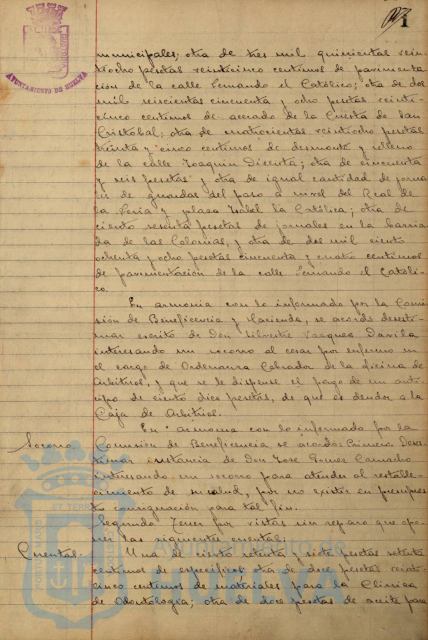 AYUNTAMIENTO DE HUELVA
municipales; otra de tres mil quinientas vein
tiocho pesetas veinticinco centimos de pavimenta
cion de la calle Fernando el Católico; otra de dos
mil seiscientas cincuenta y ocho pesetas veinti-
cinco centimos de acerado de la Cuesta de San
Cristobal; otra de cuatrocientas veintiocho pesetas
treinta y cinco centimos de desmonte y relleno
de la calle Joaquin Dicenta; otra de cincuenta
y seis pesetas y otra de igual cantidad de jorna
les de guardas del paso a nivel del Real de
la Feria y plaza Isabel la Católica; otra de
ciento sesenta pesetas de jornales en la barria
da de las Colonias, y otra de dos mil ciento
ochenta y ocho pesetas cincuenta y cuatro centimos
de pavimentación de la calle Fernando el Catoli-
co.
En armonia con lo informado por la Comi
sión de Beneficencia y Hacienda, se acordó desesti-
mar escrito de Don Silvestre Vazquez Davila
interesando un socorro al cesar por enfermo en
el cargo de Ordenanza Cobrador de la oficina de
Arbitrios, y que se le dispense el pago de un anti-
cipo de ciento diez pesetas, de que es deudor a la
Caja de Arbitrios.
En armonia con lo informado por la
Socorro Comisión de Beneficencia se acordó: Primero. Deses
timar instancia de Don José Gomez Camacho
interesando un socorro para atender al restable-
cimiento de su salud, por no existir en presupues
to consignación para tal fin.
Segundo. Tener por vistas sin reparo que opo-
ner las siguientes cuentas:
Cuentas. Una de ciento setenta y siete pesetas setenta
centimos de especificos; otra de doce pesetas veinti-
cinco centimos de materiales para la Clinica
de Odontología; otra de doce pesetas de aceite para